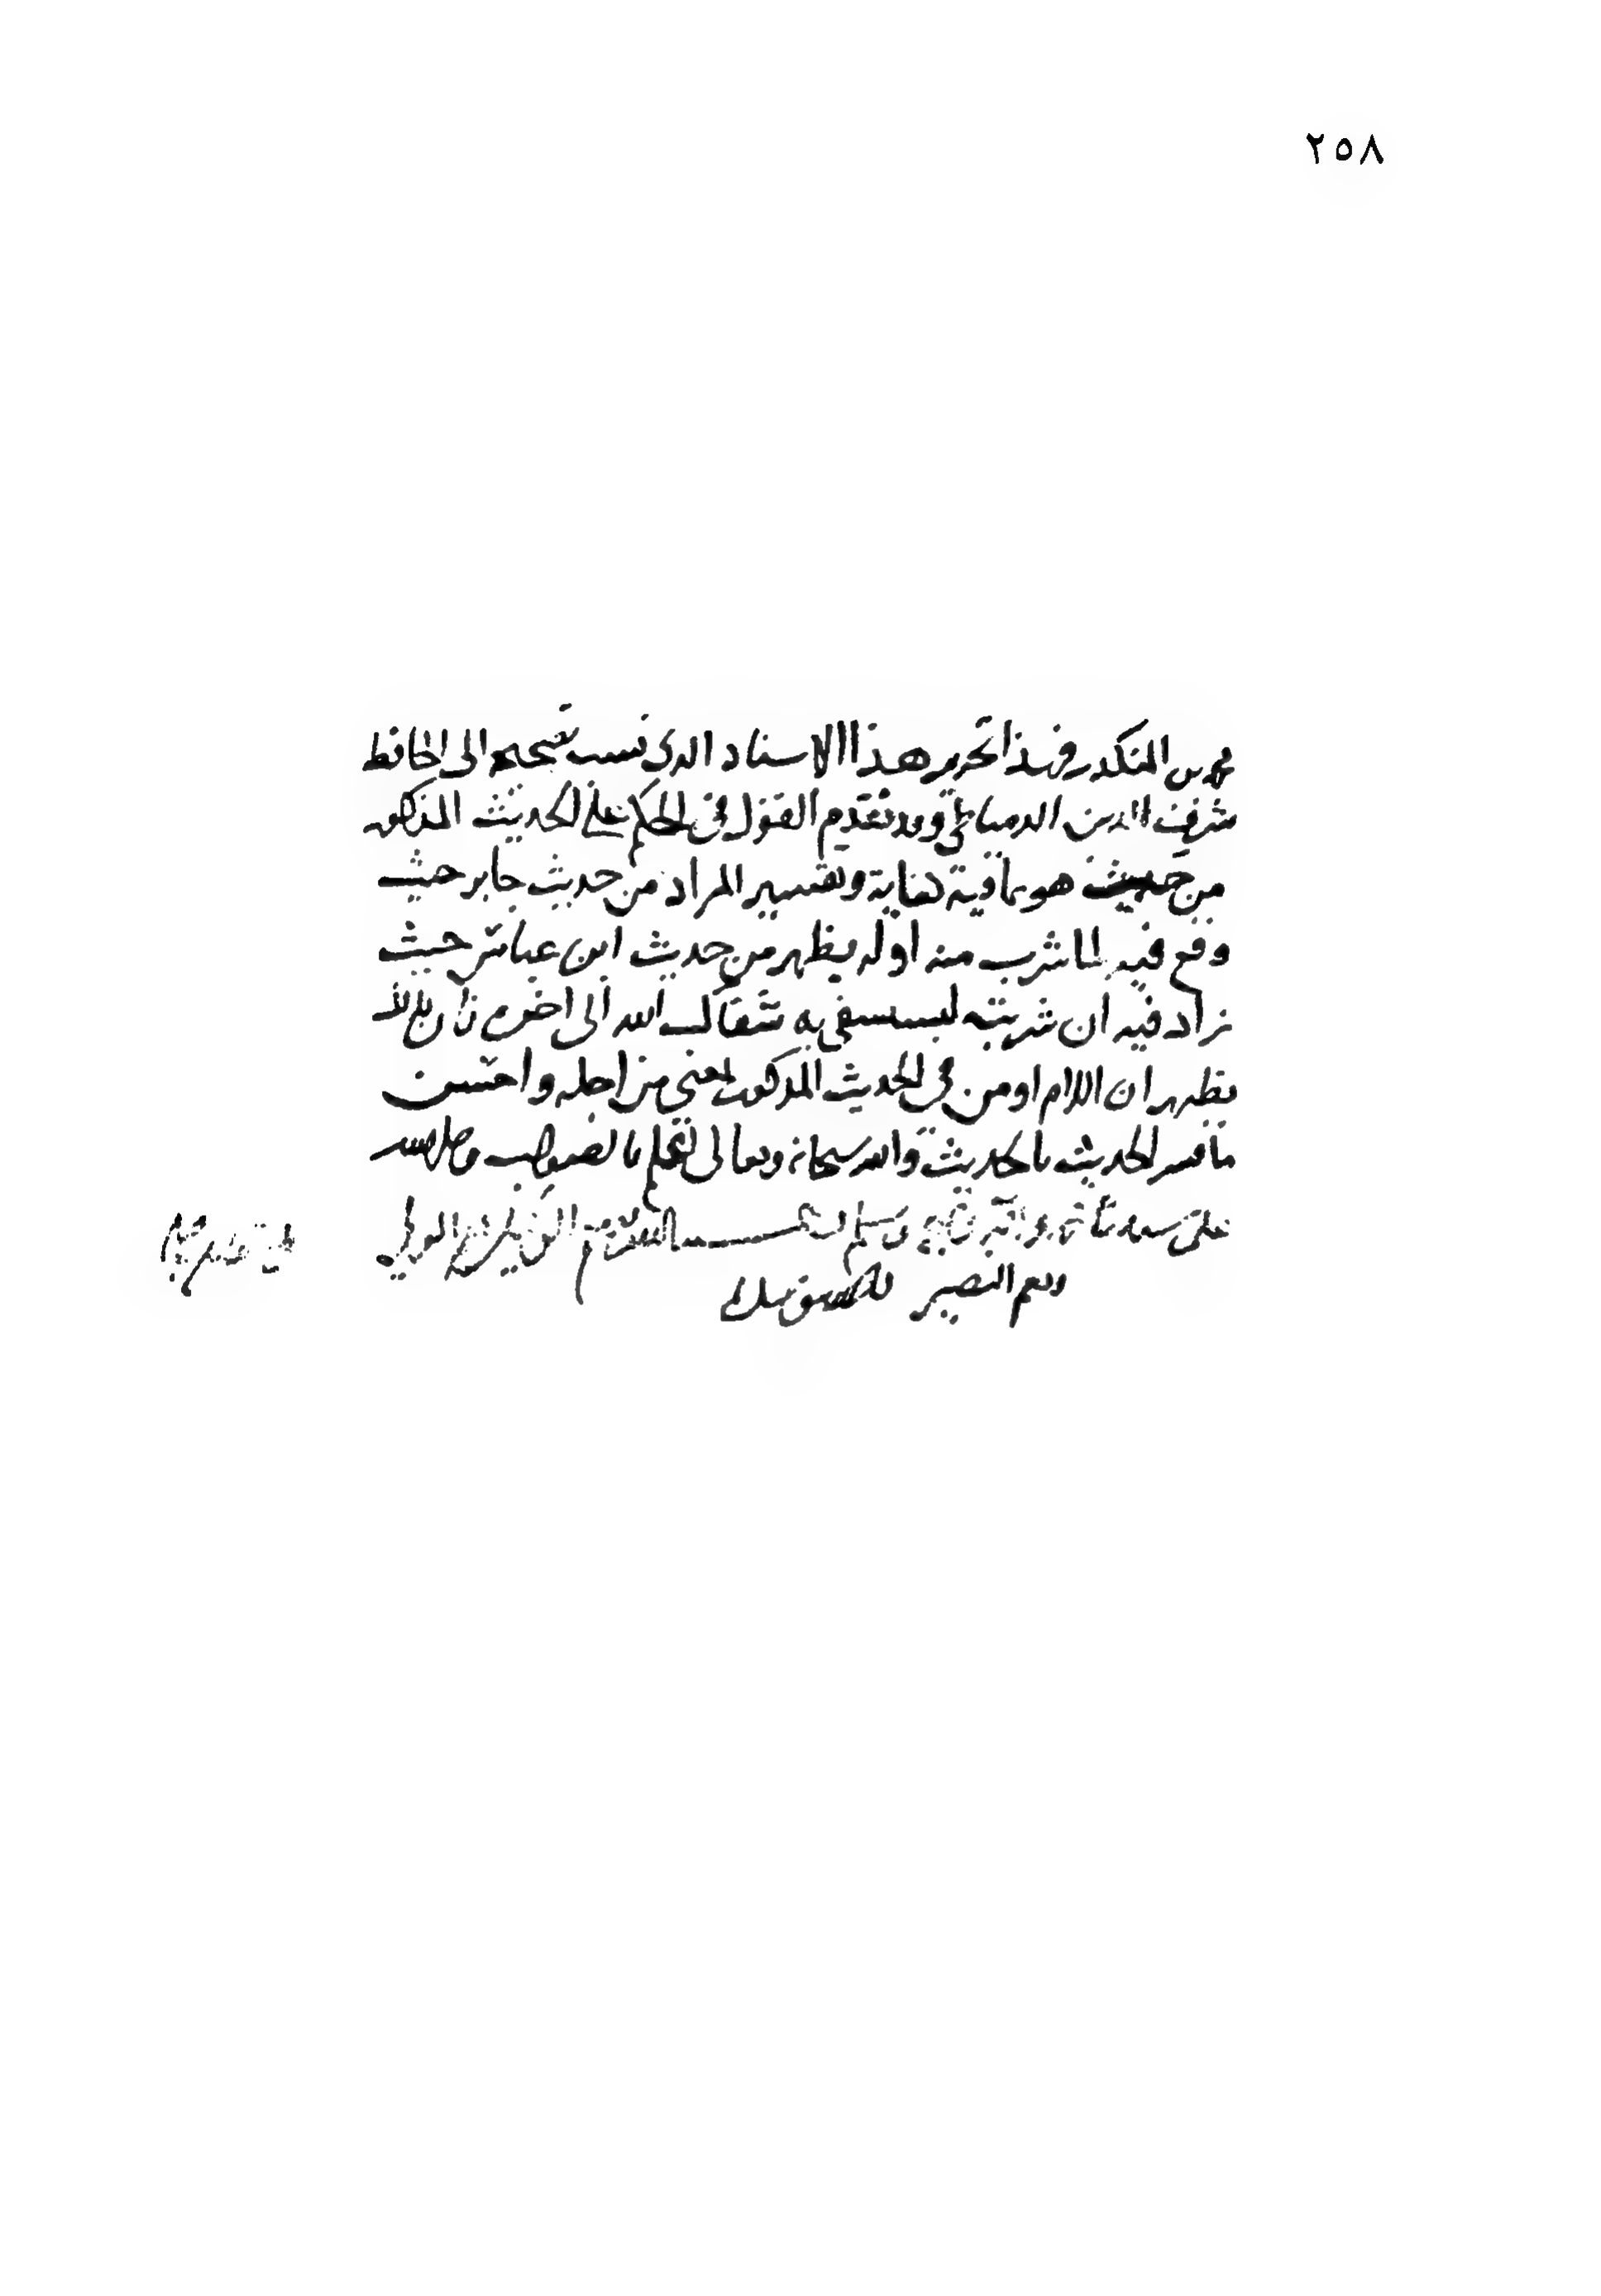 ٢٥٨
محمد بن المنكدر فهذا تحرير هذا الاسناد الذي نسب تصحيحه الى الحافظ
شرف الدين الدمياطي وقد تقدم القول في الحكم على الحديث المذكور
من حيث هو بما فيه كفاية وتفسير المراد من حديث جابر حيث
وقع فيه لما شرب منه او له يظهر من حديث ابن عباس حيث
زاد فيه ان شربته ليستشفى به شفاك الله الى اخره
يظهر ان اللام او من في الحديث المذكور بمعنى من اجله واحسن
ما فسر الحديث بالحديث والله سبحانه وتعالى اعلم بالصواب وصلى الله
على سيدنا وسلم
ونعم النصير